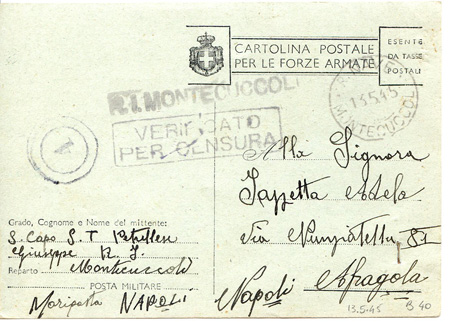 CARTOLINA POSTALE
PER LE FORZE ARMATE
ESENTE
DA TASSE
POSTALI
R.I. MONTECUCCOLI
13.5.45
MONTECUCCOLI
VERIFICATO
PER CENSURA
Alla Signora
Adela
Via Nunziatella 81
Napoli Afragola
Grado, Cognome e Nome del mittente:
S. Capo S. T.
Giuseppe R. I.
Reparto Montecuccoli
POSTA MILITARE
NAPOLI
13.5.45 B 40